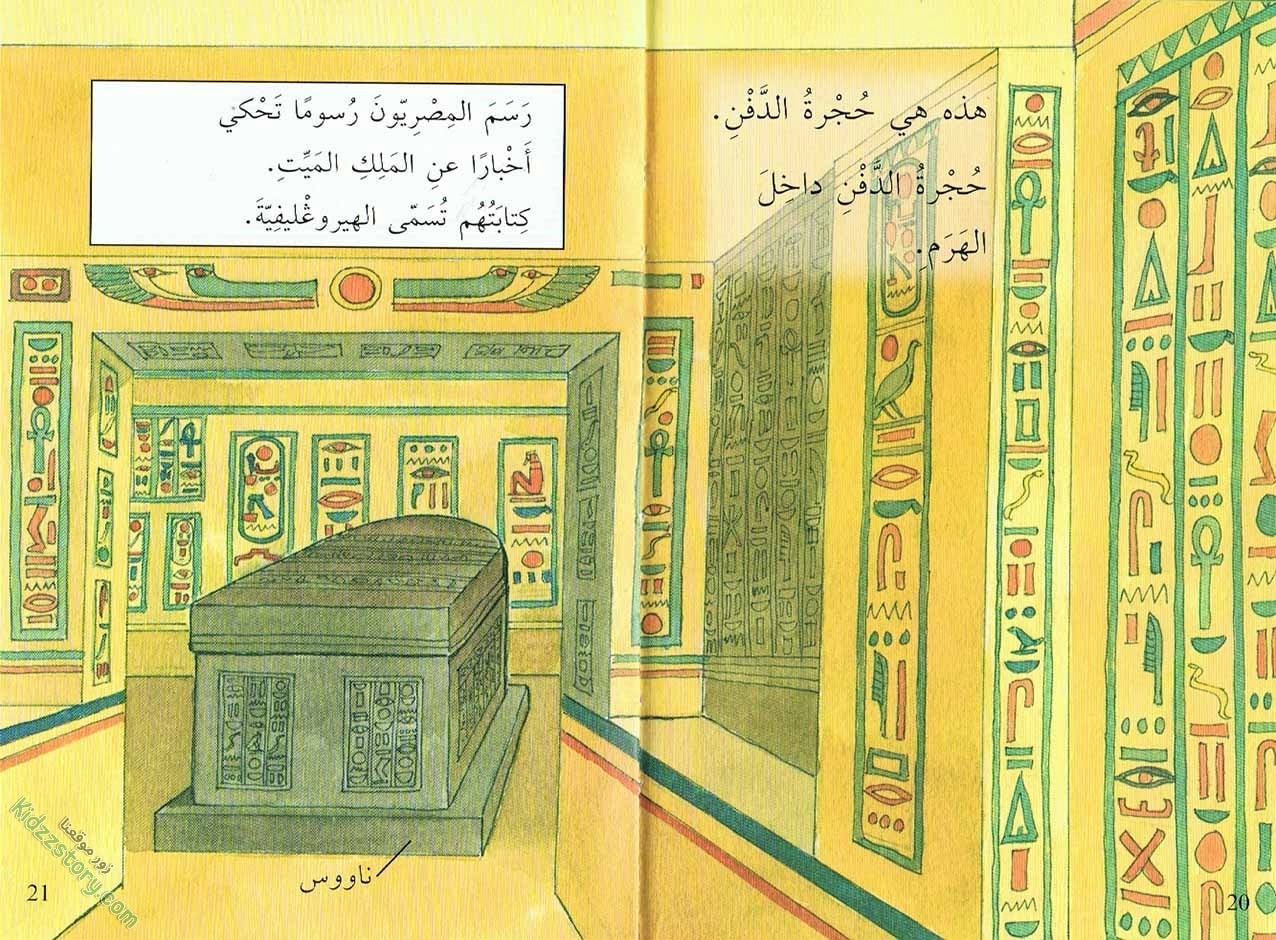 هذه هي حُجْرةُ الدَّفْنِ.
حُجْرةُ الدَّفْنِ داخِلَ
الهَرَمِ.
20
رَسَمَ المِصْرِيّونَ رُسومًا تَحْكي
أَخْبارًا عنِ المَلِكِ المَيِّتِ.
كِتابَتُهُم تُسَمّى الهيروغْليفِيّةَ.
ناووس
21
زور موقعنا
Kidzzstory.com